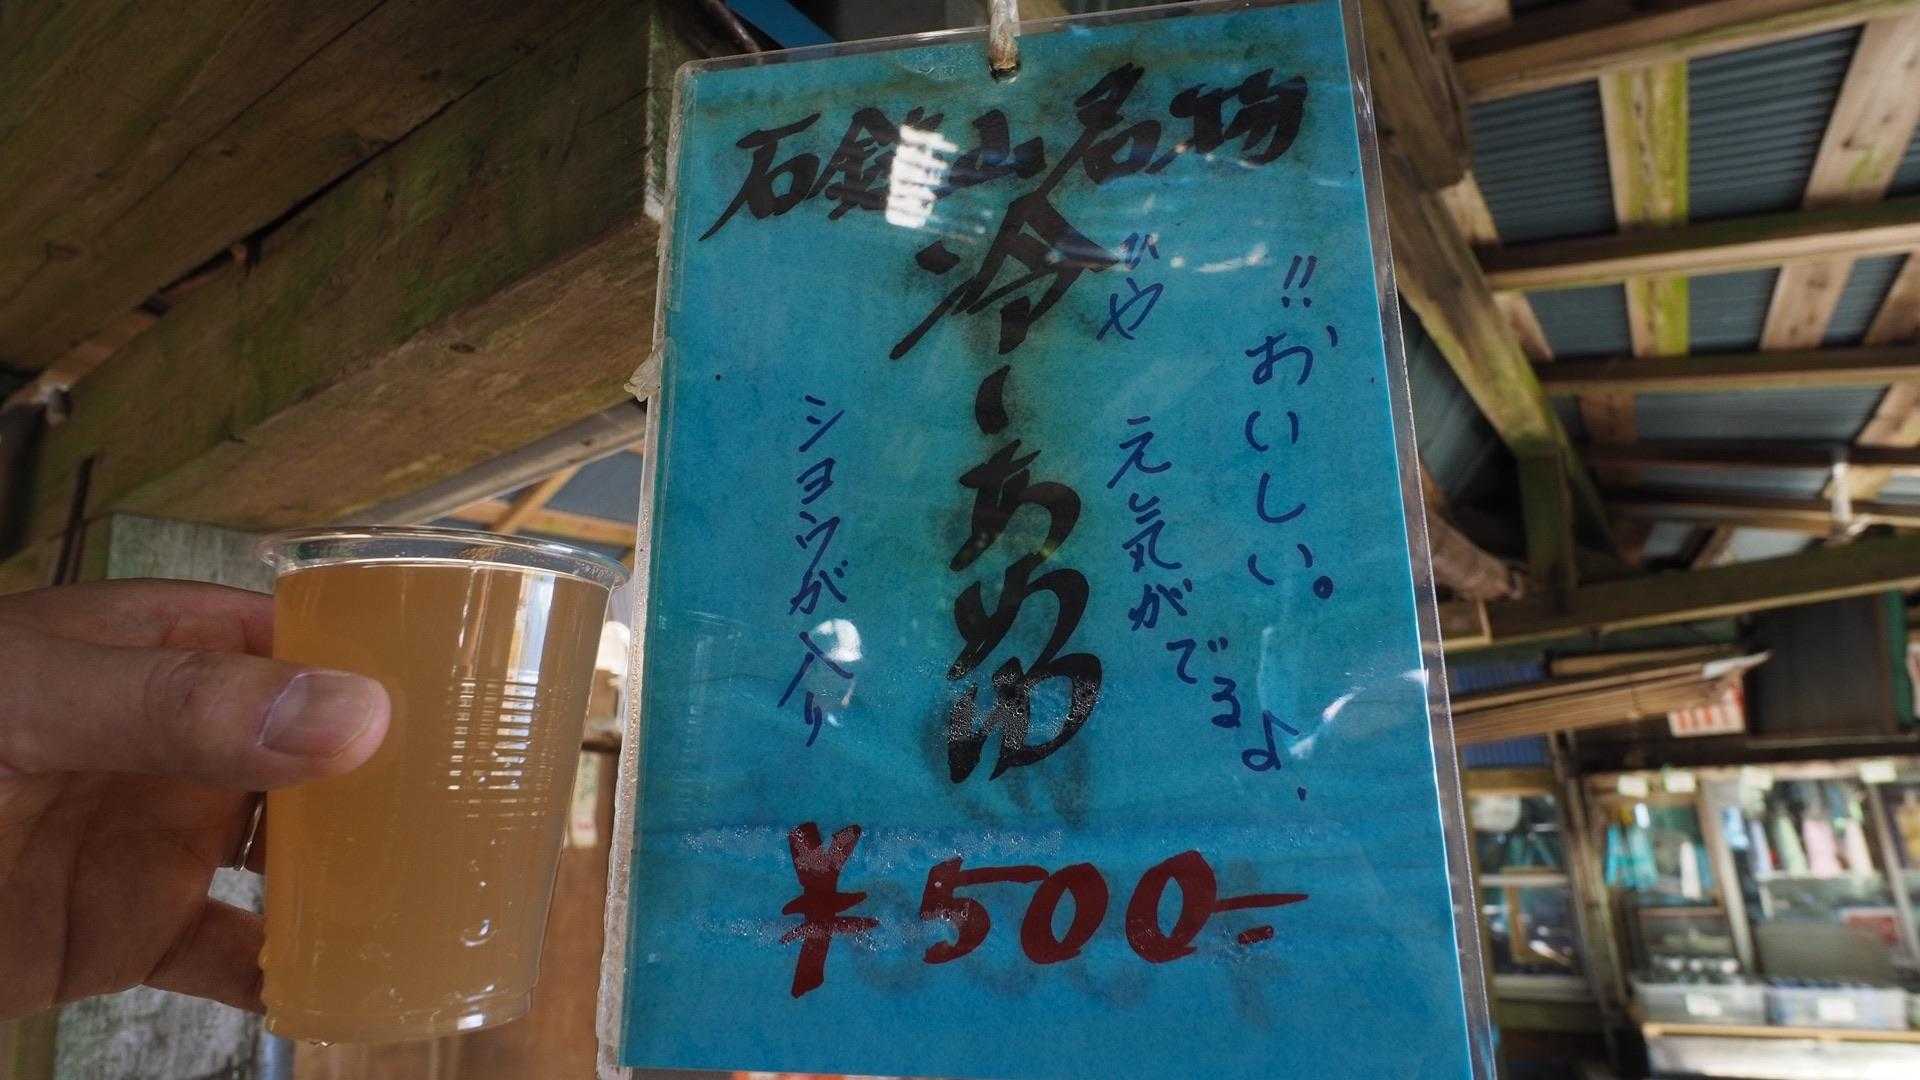 石鎚山名物
冷しあめゆ
ひや
!!おいしい。
元気がでるよ、
ショウガ入り
¥500-